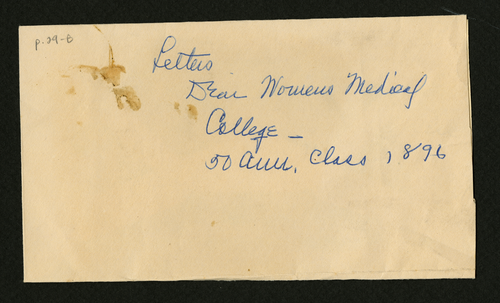 p.29-B
Letters
Dean Womens Medical
College -
50 Ann. Class 1896